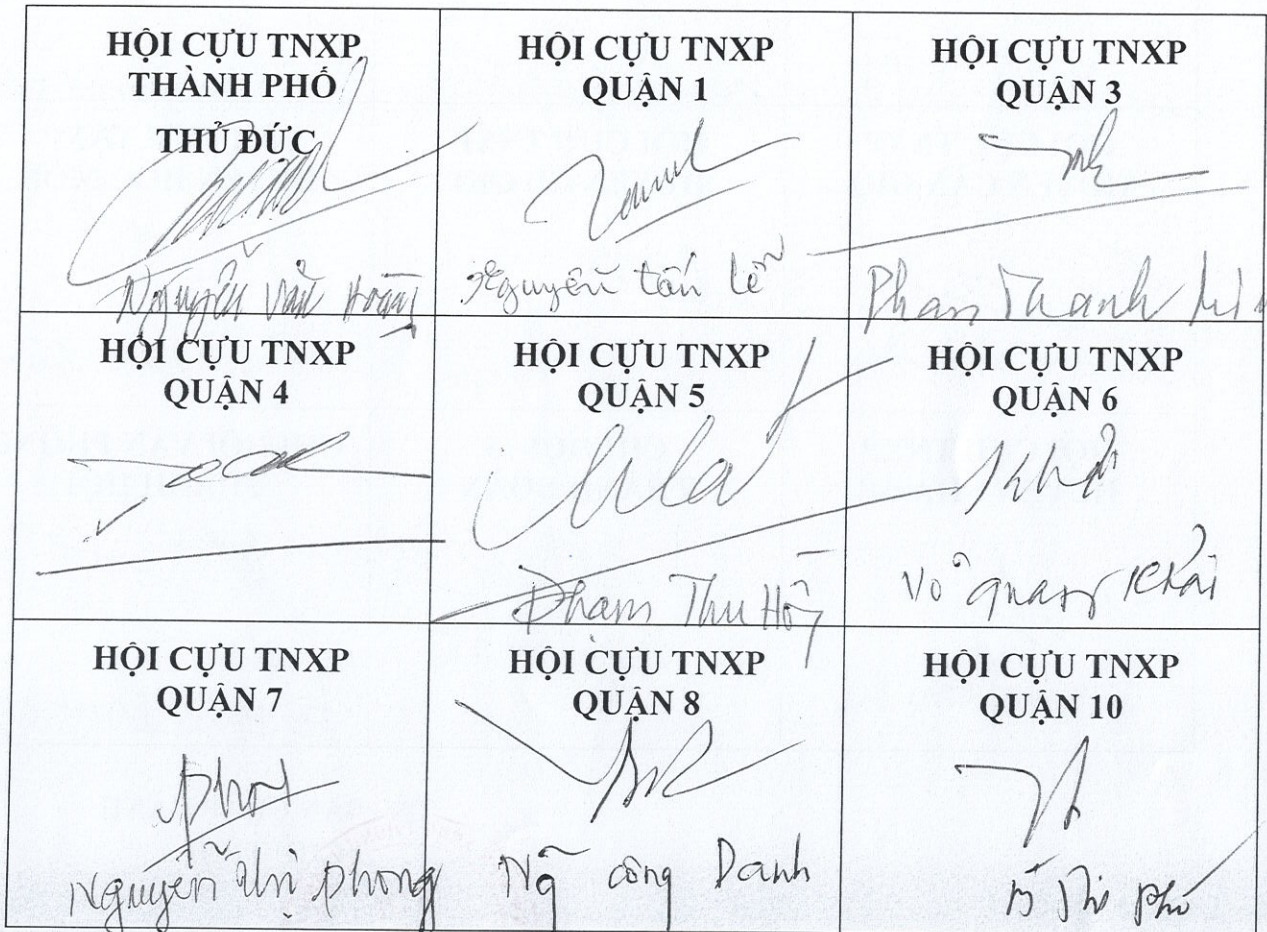 HỘI CỰU TNXP
THÀNH PHỐ
THỦ ĐỨC
Nguyễn Văn Hoàng
HỘI CỰU TNXP
QUẬN 1
Nguyễn tấn lễ
HỘI CỰU TNXP
QUẬN 3
Phan Thanh
HỘI CỰU TNXP
QUẬN 4
HỘI CỰU TNXP
QUẬN 5
Phạm Thu Hồng
HỘI CỰU TNXP
QUẬN 6
Khải
Võ quang Khải
HỘI CỰU TNXP
QUẬN 7
Nguyễn phong
HỘI CỰU TNXP
QUẬN 8
Ng̃ công Danh
HỘI CỰU TNXP
QUẬN 10